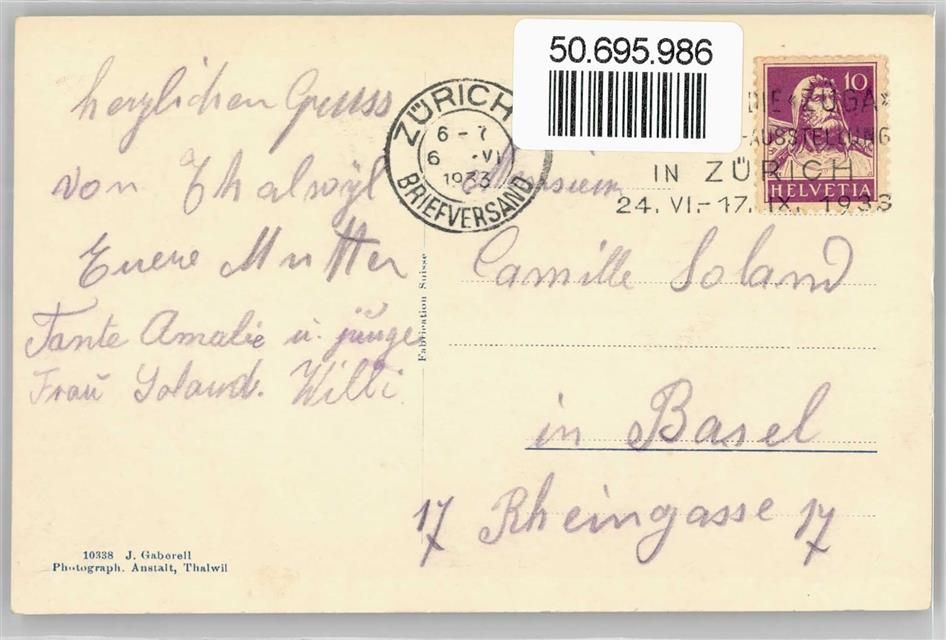 50.695.986
herzlichen Gruss
von Thalwyl
Euere Mutter
Tante Amalie u. junge
Frau Soland. Willi
ZÜRICH
6-7
6 .VI
1933
BRIEFVERSAND
DIE «ZÜGA»
-AUSSTELLUNG
IN ZÜRICH
24. VI.-17. IX. 1933
10
HELVETIA
Monsieur
Camille Soland
in Basel
17 Rheingasse 17
Fabrication Suisse
10338 J. Gaberell
Photograph. Anstalt, Thalwil